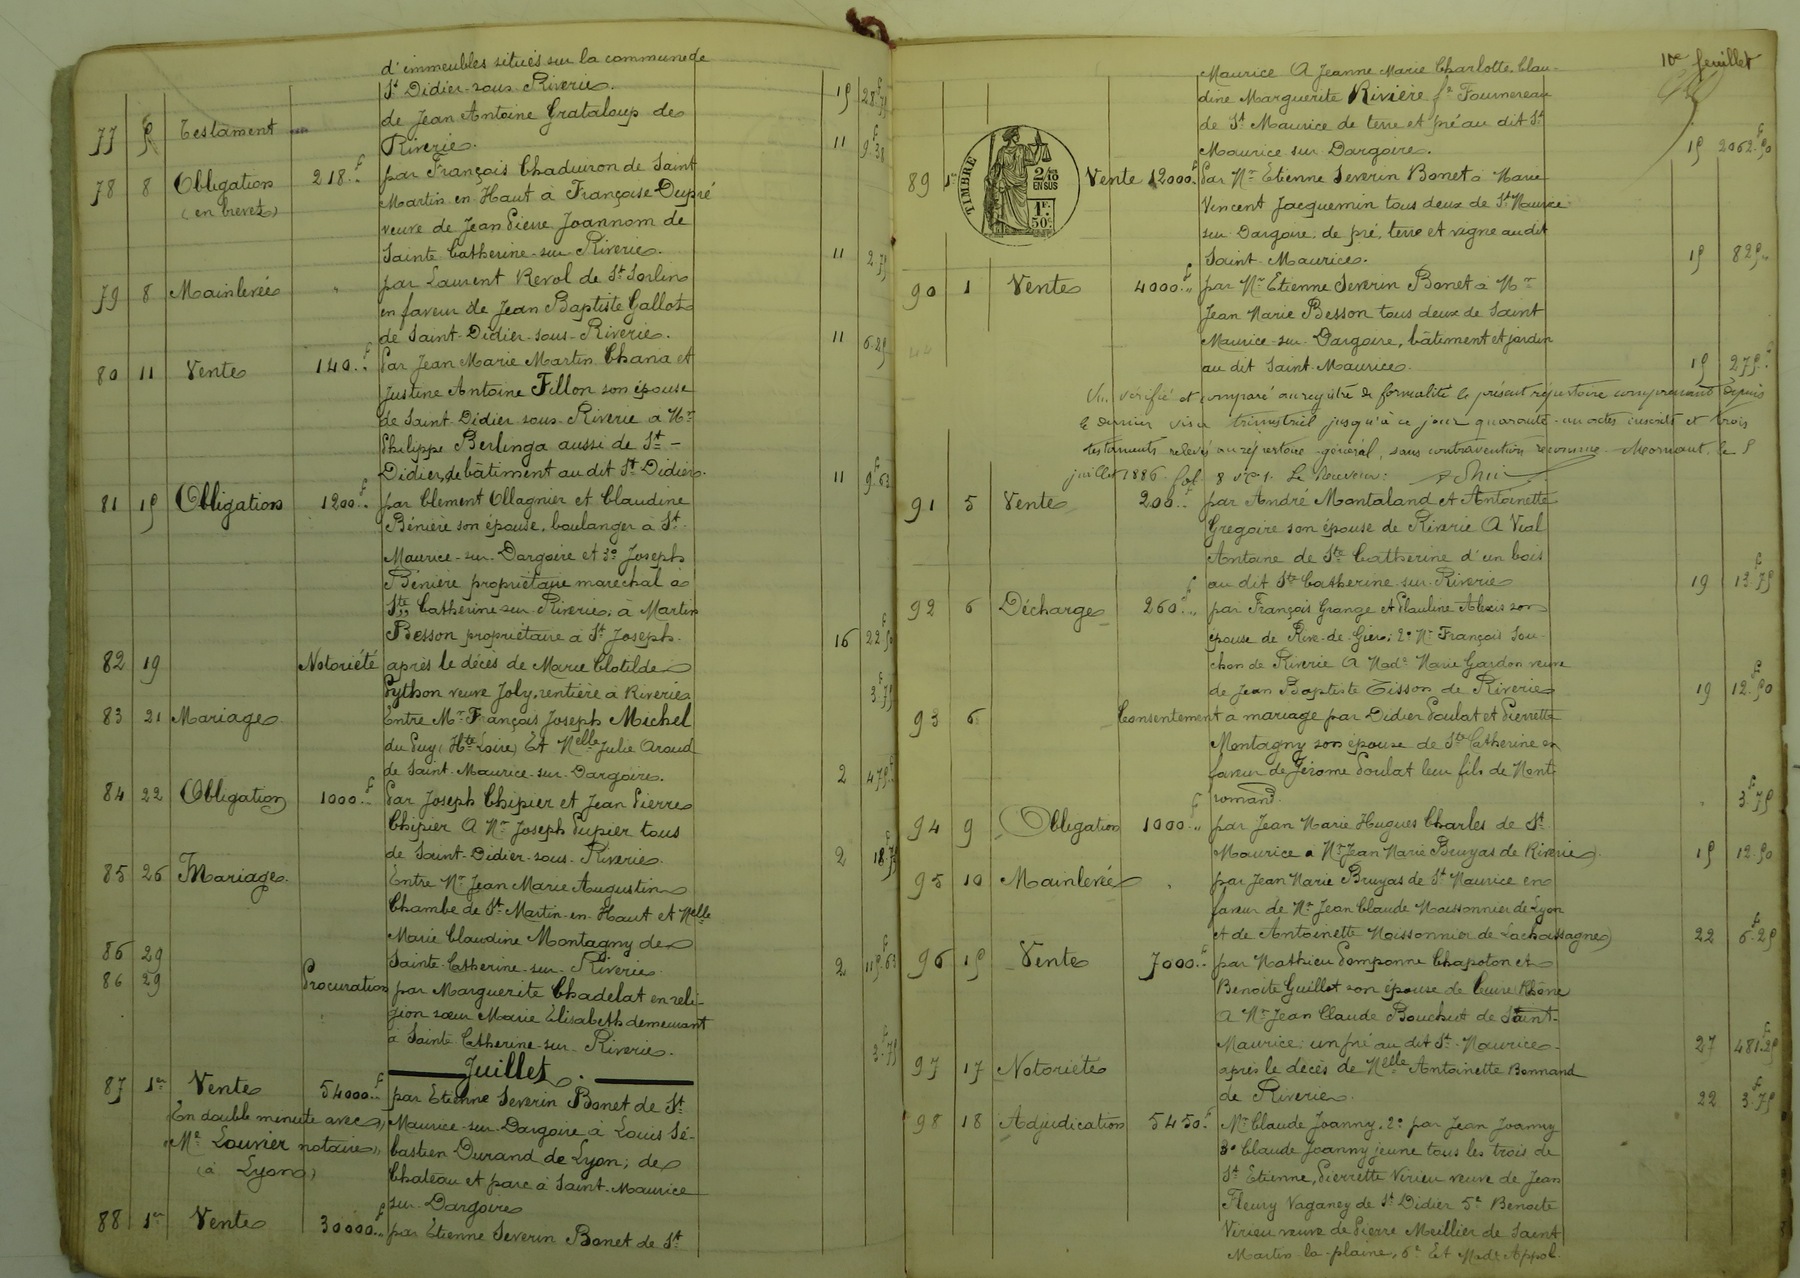 d'immeubles situés sur la commune de
St Didier-sous-Riverie. 15 28f75
77 5 Testament de Jean Antoine Grataloup de
Riverie. 11 9f38
78 8 Obligation 218f.. par François Chaduiron de Saint
(en brevet) Martin en Haut à Françoise Dupré
veuve de Jean Pierre Joannom de
Sainte Catherine-sur-Riverie. 11 2.75
79 8 Mainlevée " par Laurent Revol de St Sorlin
en faveur de Jean Baptiste Gallot
de Saint-Didier-sous-Riverie. 11 6.25
80 11 Vente 140f.. Par Jean Marie Martin Chana et
Justine Antoine Fillon son épouse
de Saint-Didier sous-Riverie à Mr
Philippe Berlinga aussi de St-
Didier, de bâtiment au dit St Didier. 11 9f63
81 15 Obligation 1200f.. par Clément Ollagnier et Claudine
Bénière son épouse, boulanger à St-
Maurice-sur-Dargoire et 3° Joseph
Bénière propriétaire maréchal à
Ste Catherine-sur-Riverie; à Martin
Besson propriétaire à St Joseph. 16 22f50
82 19 Notoriété après le décès de Marie Clotilde
Python veuve Joly, rentière à Riverie 3f75
83 21 Mariage Entre Mr François Joseph Michel
du Puy (Hte Loire) Et Melle Julie Araud
de Saint-Maurice-sur-Dargoire. 2 475f
84 22 Obligation 1000f.. Par Joseph Chipier et Jean Pierre
Chipier A Mr Joseph Pupier tous
de Saint-Didier-sous-Riverie. 2 18.75
85 26 Mariage. Entre Mr Jean Marie Augustin
Chambe de St-Martin-en-Haut et Melle
Marie Claudine Montagny de
86 29 Sainte-Catherine-sur-Riverie. 2 115f63
86 29 Procuration par Marguerite Chadelat en reli-
gion sœur Marie Elisabeth demeurant
à Sainte Catherine-sur-Riverie. 3f75
Juillet.
87 1er Vente 54000f.. par Etienne Severin Bonet de St
En double minute avec Maurice-sur-Dargoire à Louis Sé-
Me Louvier notaire bastien Durand de Lyon; de
(à Lyon) Chateau et parc à Saint-Maurice
sur-Dargoire
88 1er Vente 30000f.. par Etienne Severin Bonet de St
10e feuillet
Maurice A Jeanne Marie Charlotte Clau-
dine Marguerite Rivière fe Fournereau
de St Maurice de terre et pré au dit St
Maurice-sur-Dargoire. 15 2062f50
TIMBRE
2/10
EN SUS
1F.
50c.
89 1er Vente 12000f. Par Mr Etienne Severin Bonet à Marie
Vincent Jacquemin tous deux de St Maurice
sur-Dargoire; de pré, terre et vigne au dit
Saint-Maurice. 15 825..
90 1 Vente 4000f.. par Mr Etienne Severin Bonet à Mr
Jean Marie Besson tous deux de Saint
Maurice-sur-Dargoire, bâtiment et jardin
au dit Saint-Maurice. 15 275f.
Vu, vérifié et comparé au registre de formalité le présent répertoire comprenant depuis
le dernier visa trimestriel jusqu'à ce jour quarante-un actes inscrits et trois
testaments relevés au répertoire général, sans contravention reconnue. Mornant, le 5
juillet 1886. fol. 8 No 1. Le Receveur:
91 5 Vente 200f.. par André Montaland et Antoinette
Gregoire son épouse de Riverie A Vial
Antoine de Ste Catherine d'un bois
au dit Ste Catherine-sur-Riverie 19 13f75
92 6 Décharge 260f.. par François Grange et Pauline Alexis son
épouse de Rive-de-Gier; 2° Mr François Sou-
chon de Riverie A Made Marie Gardon veuve
de Jean Baptiste Tisson de Riverie 19 12f50
93 6 Consentement à mariage par Didier Poulat et Pierrette
Montagny son épouse de Ste Catherine en
faveur de Jérome Poulat leur fils de Mont-
romand. 3f75
94 9 Obligation 1000f.. par Jean Marie Hugues Charles de St-
Maurice à Mr Jean Marie Bruyas de Riverie 15 12.50
95 10 Mainlevée par Jean Marie Bruyas de St Maurice en
faveur de Mr Jean Claude Moissonnier de Lyon
et de Antoinette Moissonnier de Lachassagne 22 6f25
96 15 Vente 7000f.. par Mathieu Pomponne Chapoton et
Benoite Guillot son épouse de Cuire Rhône
A Mr Jean Claude Bouchut de Saint-
Maurice; un pré au dit St-Maurice. 27 481f25
97 17 Notoriété après le décès de Melle Antoinette Bonnand
de Riverie. 22 3f75
98 18 Adjudication 5450f. Mr Claude Joanny, 2° par Jean Joanny
3° Claude Joanny jeune tous les trois de
St Etienne, Pierrette Virieu veuve de Jean
Fleury Vaganey de St Didier 5° Benoite
Virieu veuve de Pierre Meillier de Saint
Martin-la-plaine, 6° Et Made Appol-